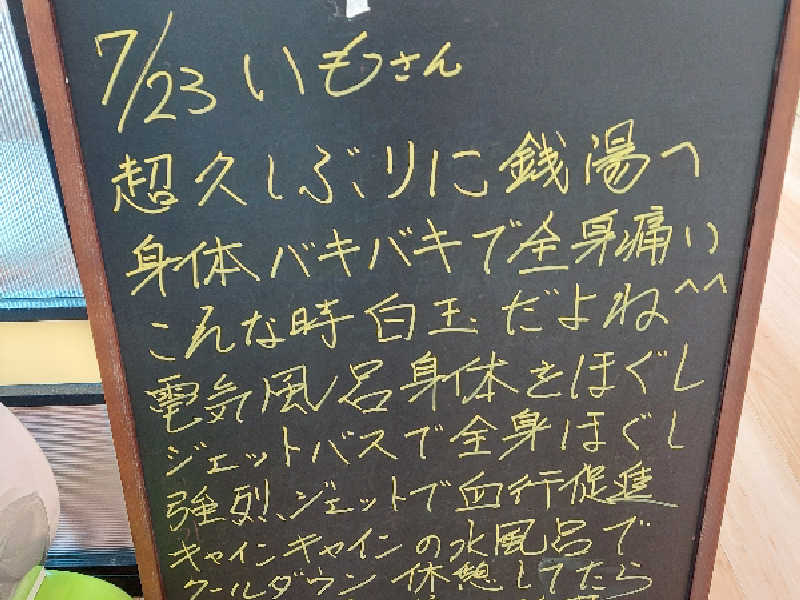 7/23 いもさん
超久しぶりに銭湯へ
身体バキバキで全身痛い
こんな時白玉だよね^^
電気風呂身体をほぐし
ジェットバスで全身ほぐし
強烈ジェットで血行促進
キャインキャインの水風呂で
クールダウン 休憩してたら